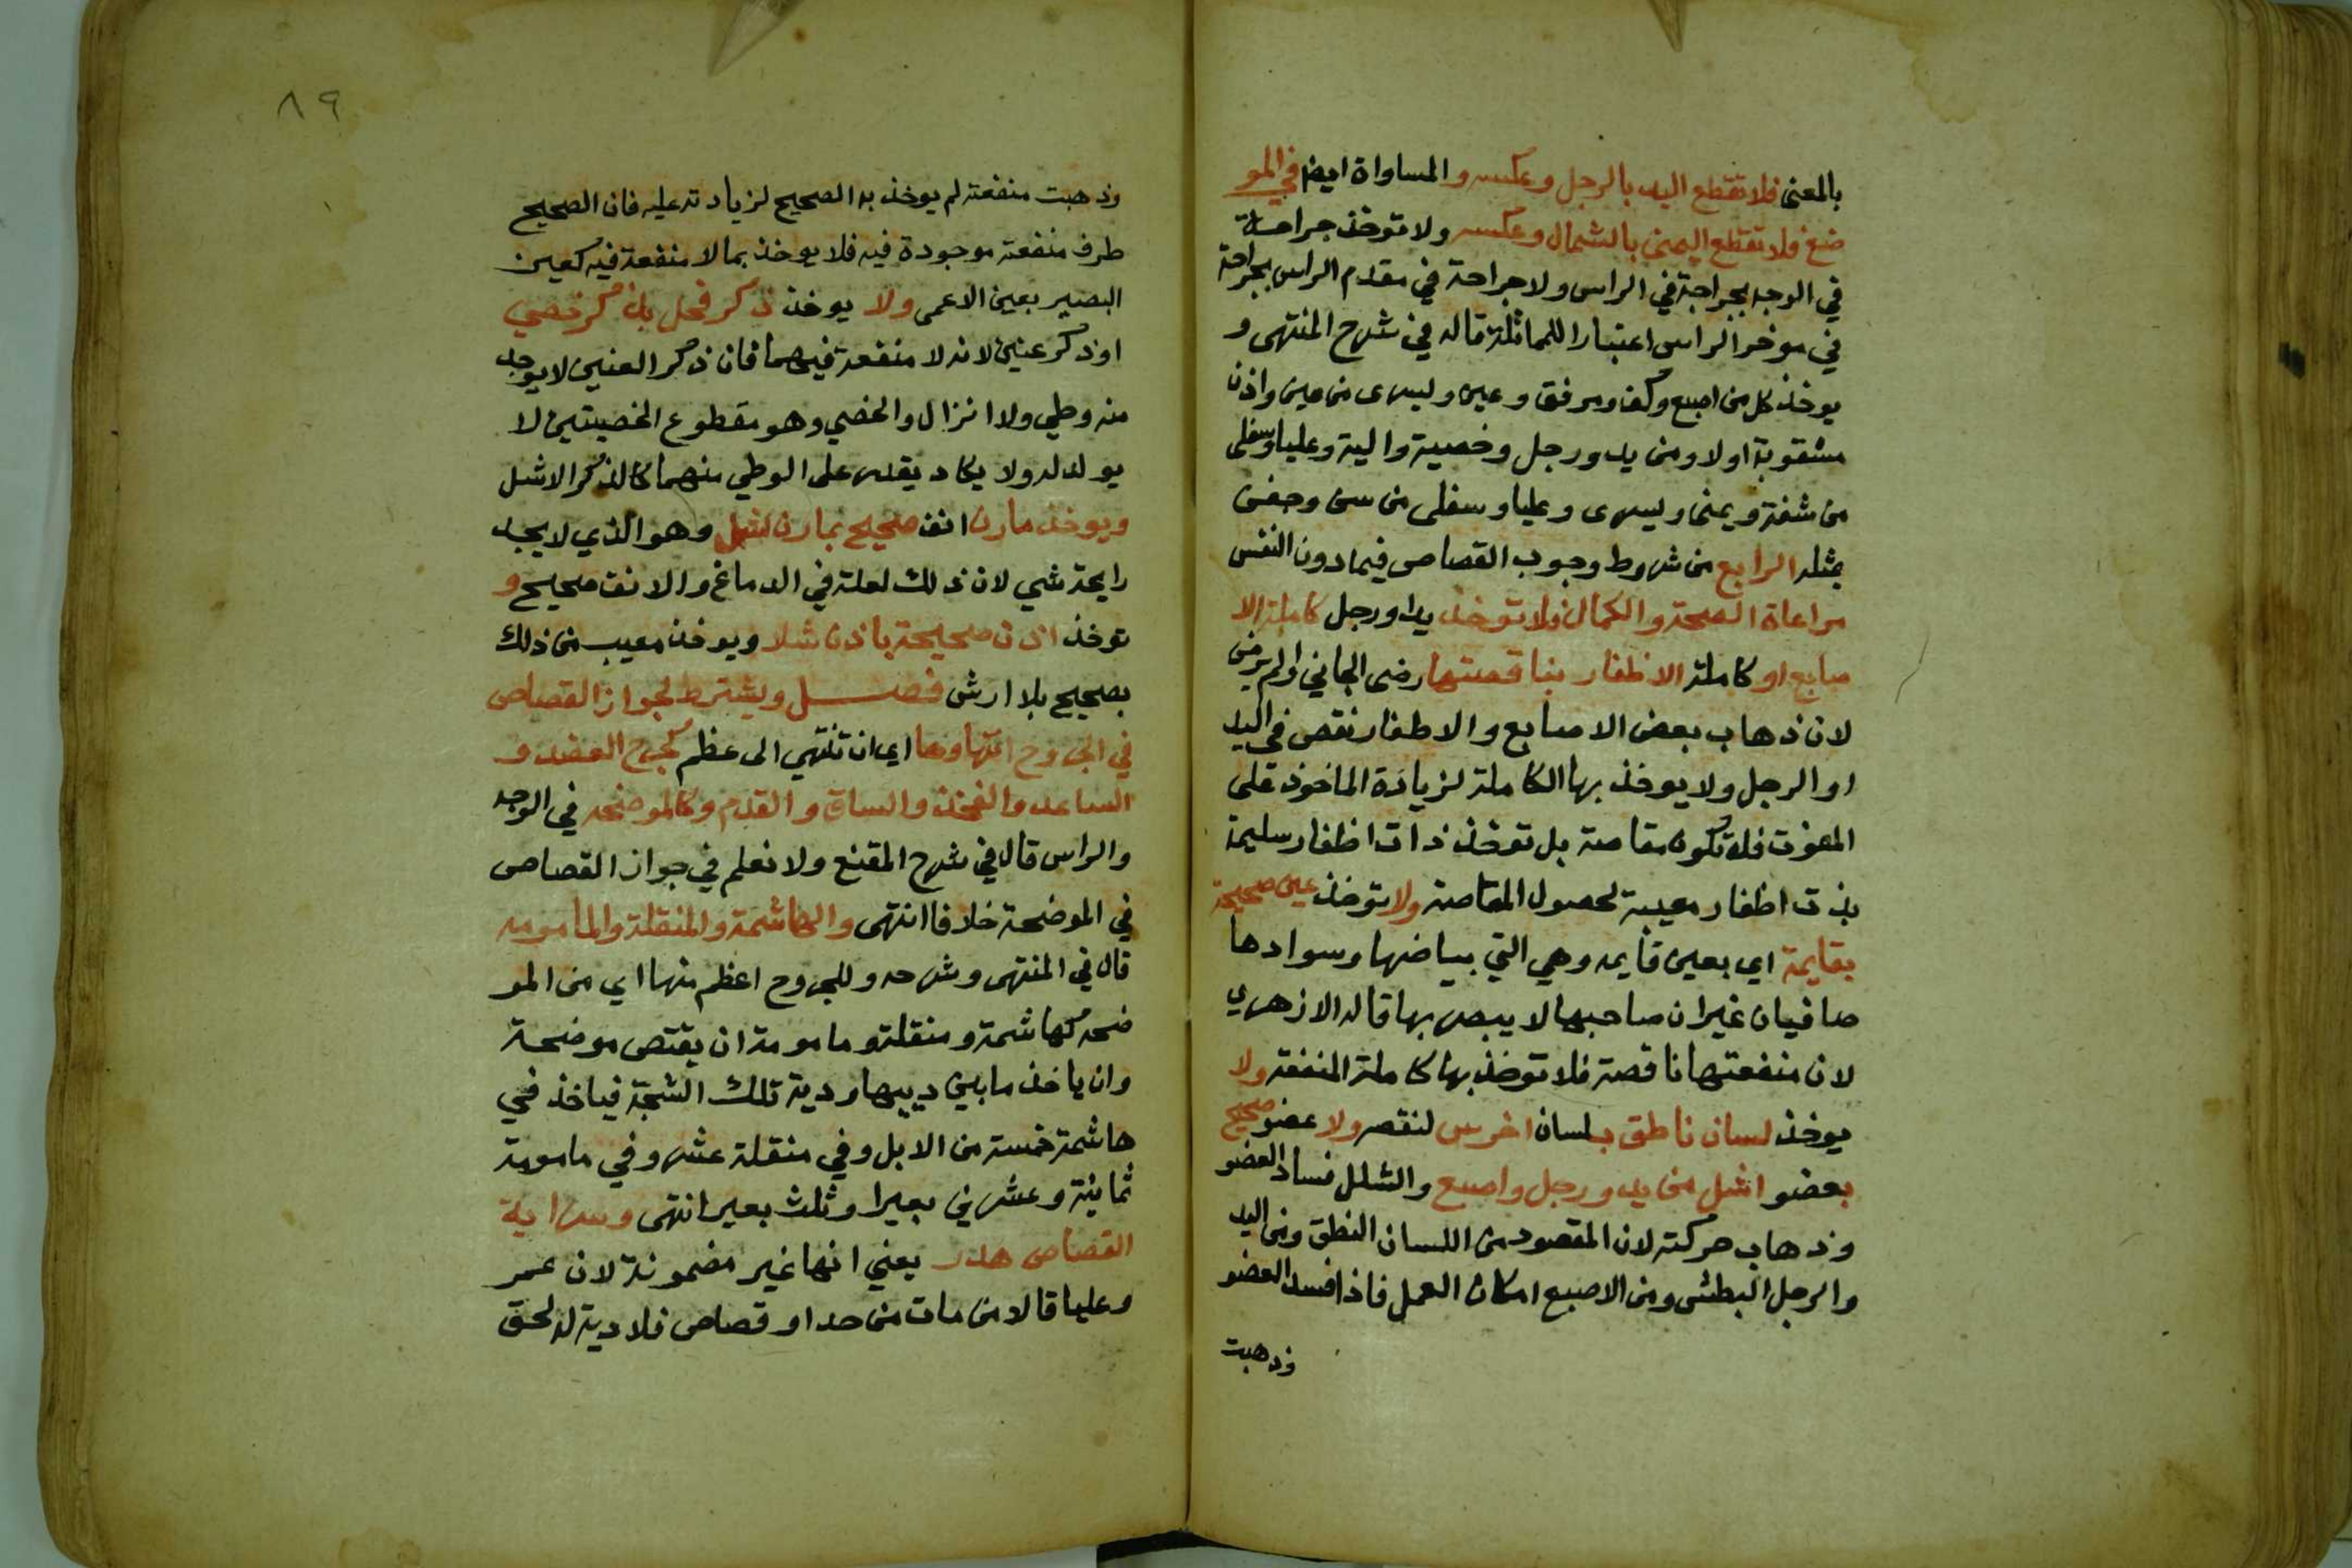 بالمعنى فلا تقطع اليد بالرجل وعكسه والمساواة ايضا في المو
ضع فلا تقطع اليمنى بالشمال وعكسه ولا توخذ جراحة
في الوجه بجراحة في الراس ولا جراحة في مقدم الراس بجراحة
في موخر الراس اعتبارا للمماثلة قاله في شرح المنتهى و
يوخذ كل من اصبع وكف ومرفق وعين وليسرى من عين واذن
مثقوبة اولا ومن يد ورجل وخصية والية وعليا وسفلى
من شفة ويمنى ويسرى وعليا وسفلى من سن وجفن
بمثله الرابع من شروط وجوب القصاص فيما دون النفس
مراعاة الصحة والكمال فلا توخذ يد او رجل كاملة الا
صابع او كاملة الاظفار بناقصتها رضى الجاني او لم يرض
لان ذهاب بعض الاصابع والاظفار نقص في اليد
او الرجل ولا يوخذ بها الكاملة لزيادة الماخوذ على
المفوت فلا تكون مقاصة بل توخذ ذات اظفار سليمة
بذت اظفار معيبة لحصول المقاصة ولا توخذ عين صحيحة
بقايمة اي بعين قايمه وهي التي بياضها وسوادها
صافيان غير ان صاحبها لا يبصر بها قاله الازهري
لان منفعتها ناقصة فلا توخذ بها كاملة المنفعة ولا
يوخذ لسان ناطق بلسان اخرس لنقصه ولا عضو صحيح
بعضو اشل من يد ورجل واصبع والشلل فساد العضو
وذهاب حركته لان المقصود من اللسان النطق ومن اليد
والرجل البطش ومن الاصبع امكان العمل فاذا فسد العضو
وذهبت
٨٩
وذهبت منفعته لم يوخذ به الصحيح لزيادته عليه فان الصحيح
طرف منفعته موجودة فيه فلا يوخذ بما لا منفعة فيه كعين
البصير بعين الاعمى ولا يوخذ ذكر فحل بذكر خصي
او ذكر عنين لانه لا منفعة فيهما فان ذكر العنين لا يوجد
منه وطي ولا انزال والخصي وهو مقطوع الخصيتين لا
يولد له ولا يكاد يقدر على الوطي منهما كالذكر الاشل
ويوخذ مارن انف صحيح بمارن اشل وهو الذي لا يجد
رايحة شي لان ذلك لعلة في الدماغ والانف صحيح و
توخذ اذن صحيحة باذن شلا ويوخذ معيب من ذلك
بصحيح بلا ارش فصل ويشترط لجواز القصاص
في الجروح انتهاوها اي ان تنتهي الى عظم كجرح العضد و
الساعد والفخذ والساق والقدم وكالموضحه في الوجه
والراس قال في شرح المقنع ولا نعلم في جواز القصاص
في الموضحة خلافا انتهى والهاشمة والمنقلة والمامومه
قال في المنتهى وشرحه وللمجروح اعظم منها اي من المو
ضحه كهاشمة ومنقلة ومامومة ان يقتص موضحة
وان ياخذ ما بين ديتها ودية تلك الشجة فياخذ في
هاشمة خمسة من الابل وفي منقلة عشر وفي مامومة
ثمانية وعشرين بعيرا وثلث بعير انتهى وسراية
القصاص هدر يعني انها غير مضمونة لان عمر
وعليا قالا من مات من حد او قصاص فلا دية له لحق